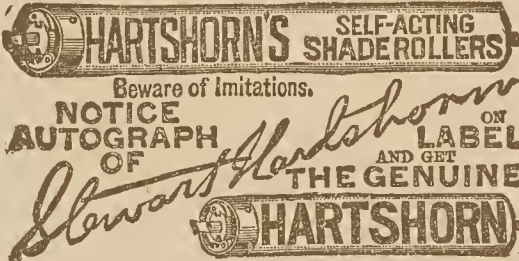 HARTSHORN'S SELF-ACTING
SHADE ROLLERS
Beware of Imitations.
NOTICE
AUTOGRAPH
OF
Stewart Hartshorn
ON
LABEL
AND GET
THE GENUINE
HARTSHORN